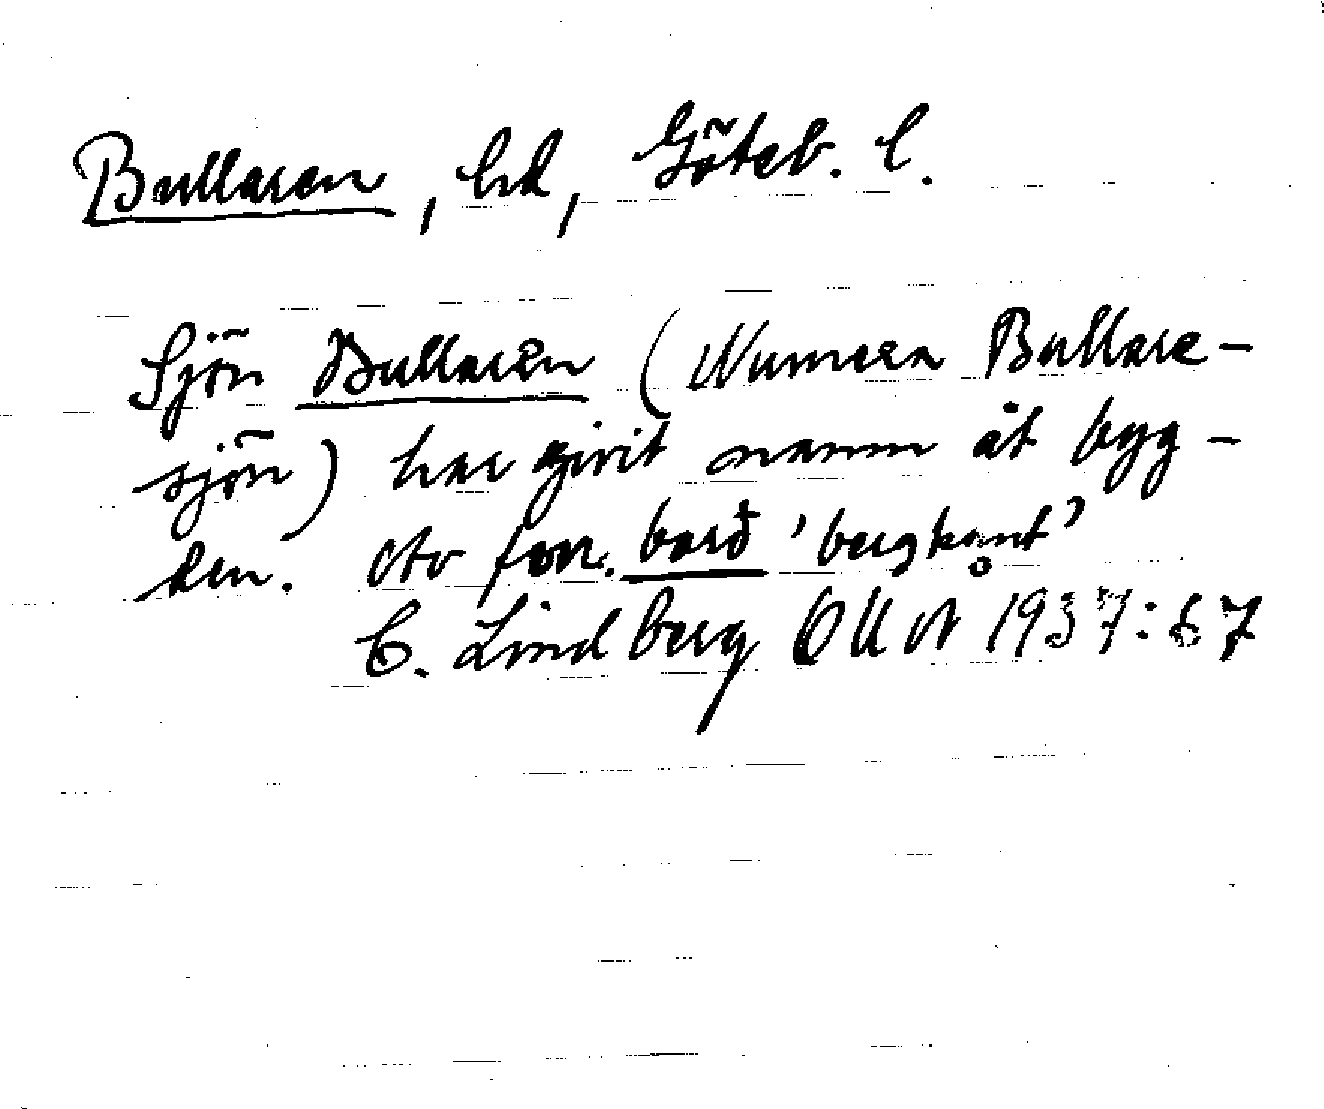 Bullaren, hd, Göteb. l.
Sjön Bullaren (Numera Bullare-
sjön) har givit namn åt byg-
den. Av fvn. barð 'bergkant'
C. Lindberg OUÅ 1937: 67